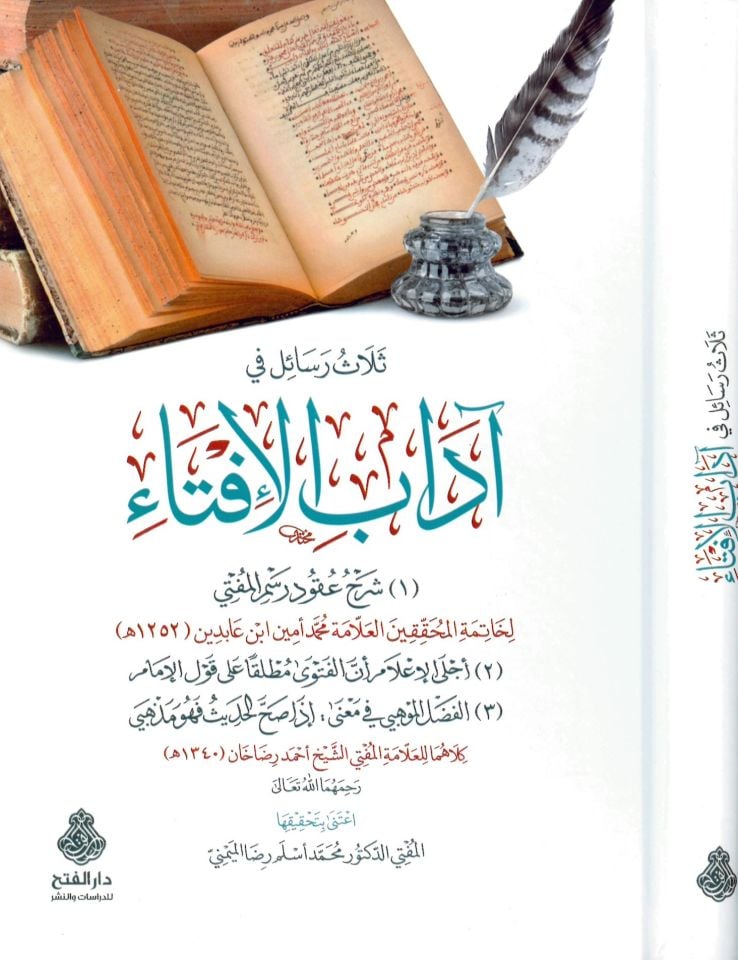 ثَلَاثُ رَسَائِل فِي
آدَابِ الإِفْتَاءِ
(١) شَرْحُ عُقُود رَسْمِ المُفْتِي
لِخَاتِمَةِ المُحَقِّقِينَ العَلَّامَة مُحَمَّد أَمِين ابْن عَابدِين (١٢٥٢هـ)
(٢) أَجْلَى الإِعْلَام أَنَّ الفَتْوَى مُطْلَقًا عَلَى قَوْلِ الإِمَام
(٣) الفَضْل المَوْهِبِي فِي مَعْنَى: إِذَا صَحَّ الحَدِيثُ فَهُوَ مَذْهَبِي
كِلَاهُمَا لِلعَلَّامَةِ المُفْتِي الشَّيْخ أَحْمَد رِضَا خَان (١٣٤٠هـ)
رَحِمَهُمَا اللهُ تَعَالَى
اعْتَنَى بِتَحْقِيقِهَا
المُفْتِي الدّكتُور مُحَمَّد أَسْلَم رِضَا المَيْمَنِيّ
دار الفتح
للدراسات والنشر
ثَلَاثُ رَسَائِل فِي
آدَابِ الإِفْتَاءِ